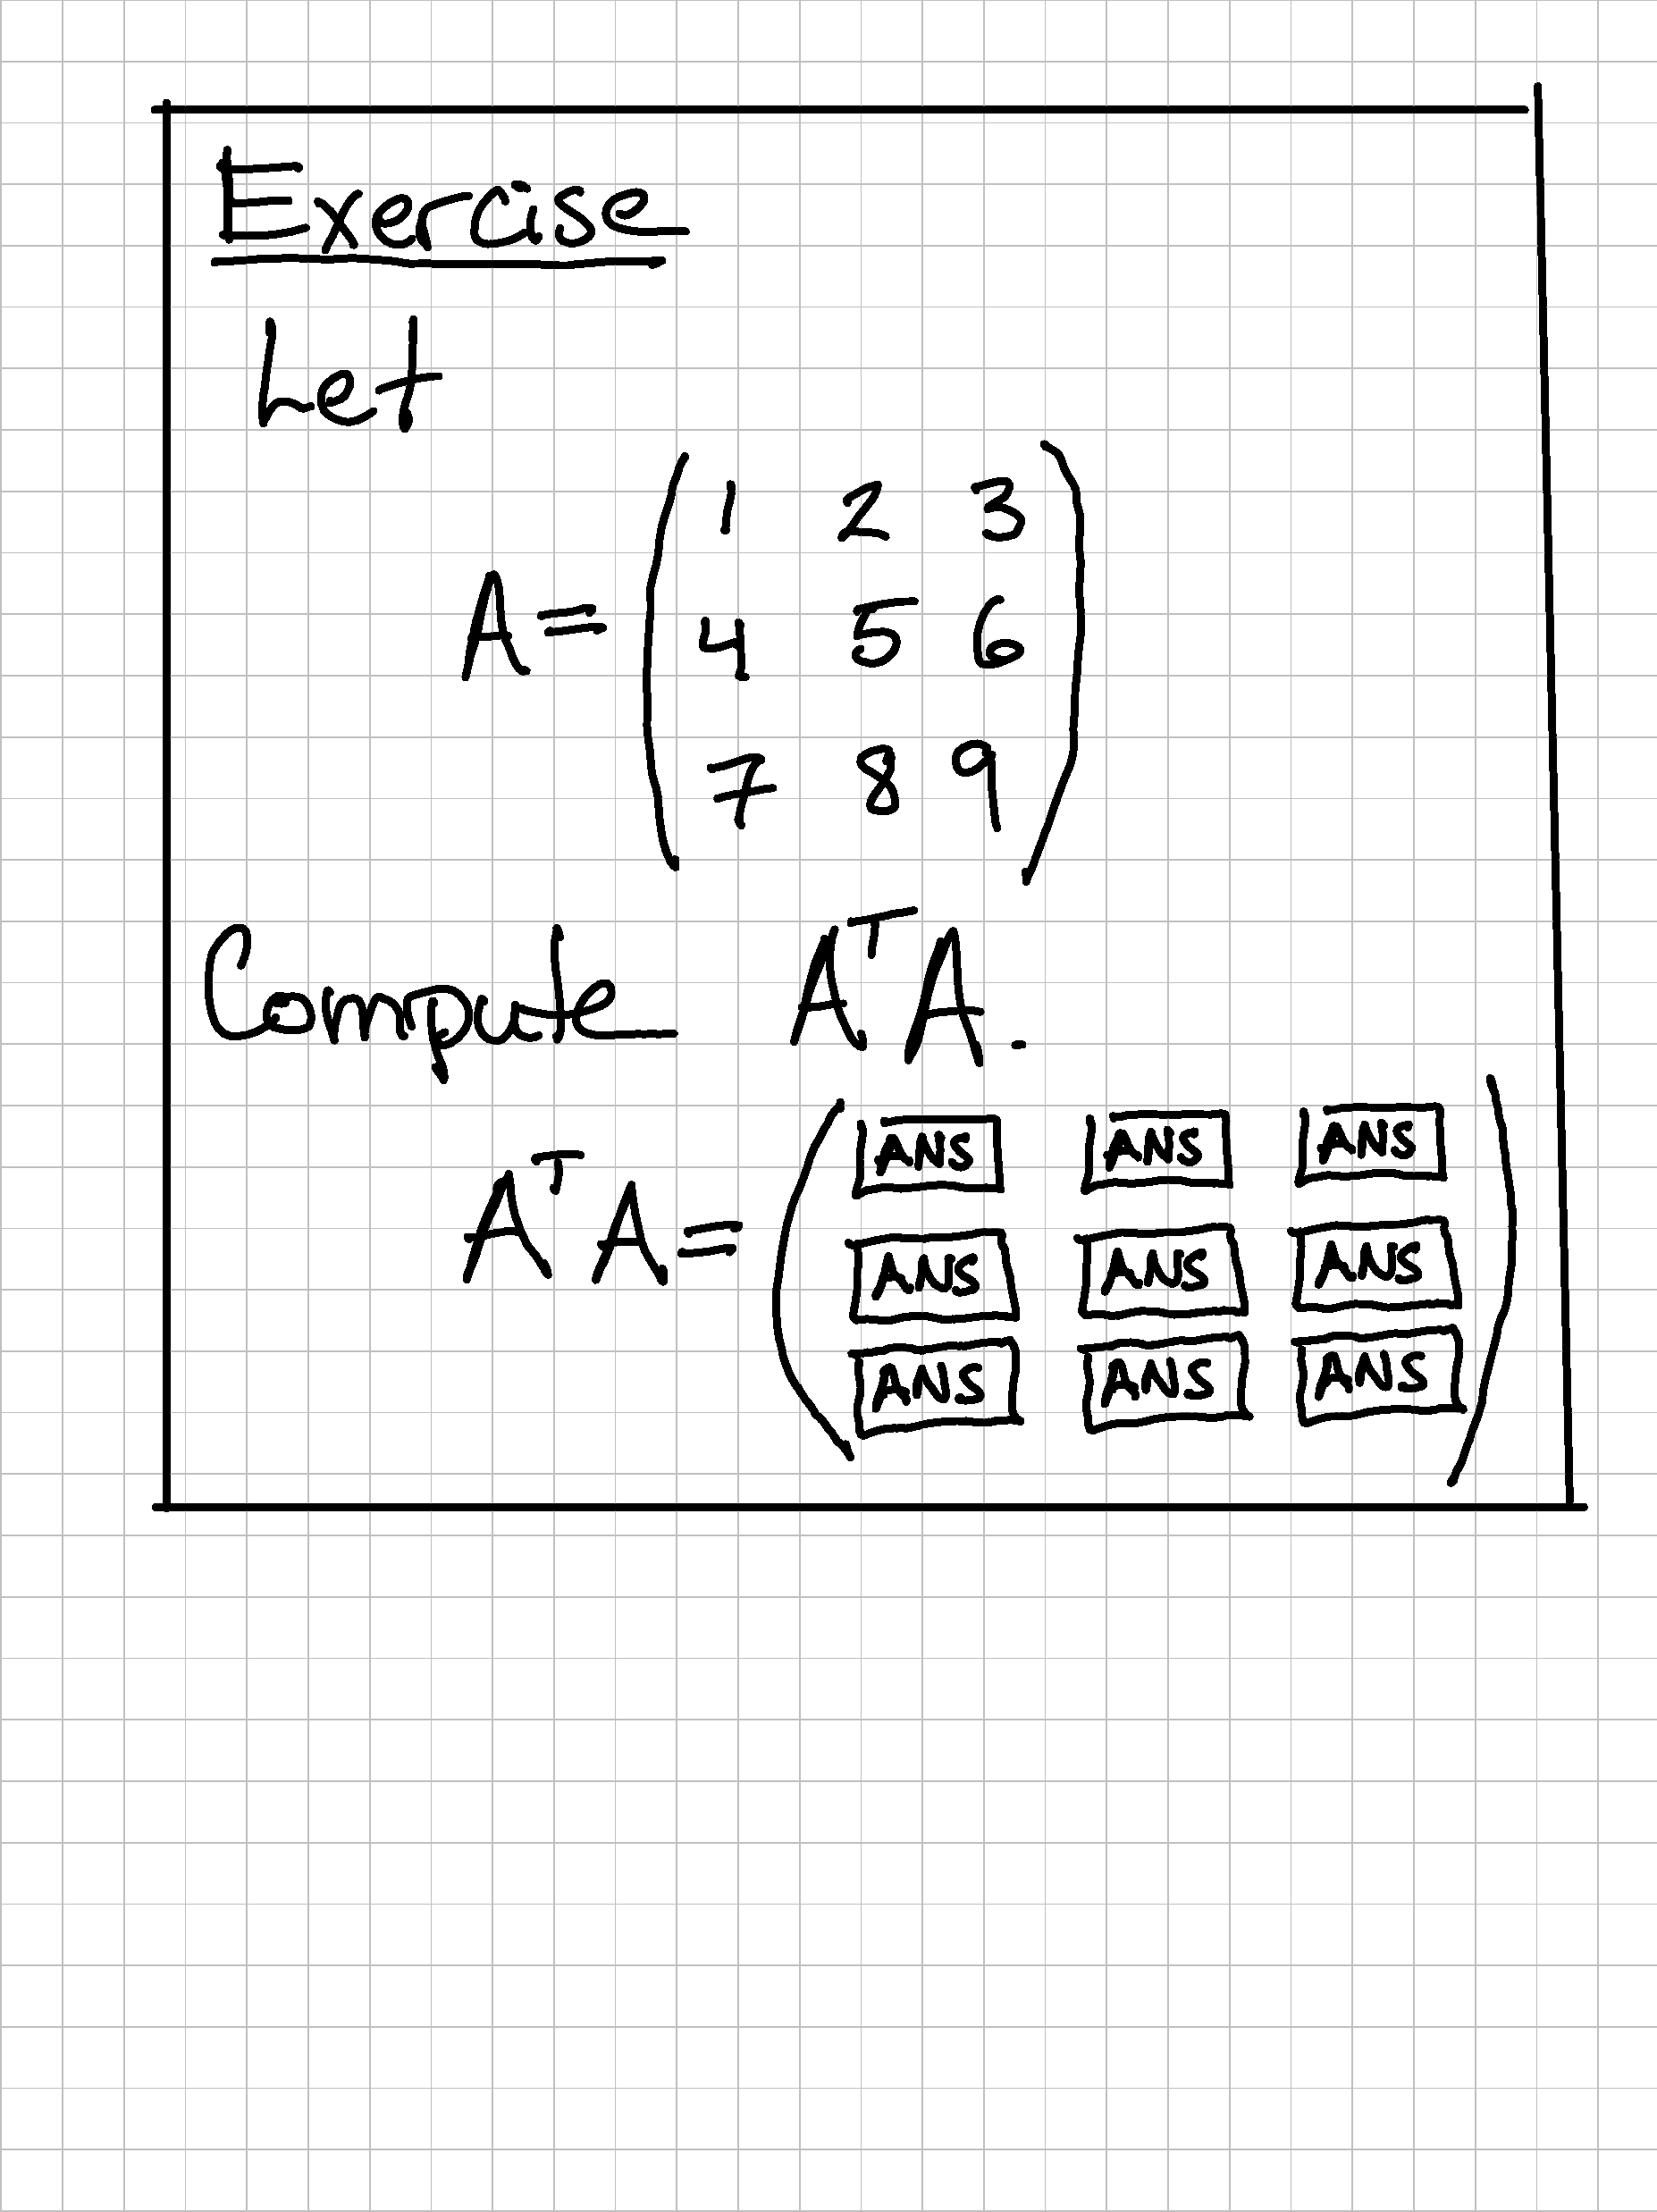 Exercise
Let
A = ( 1 2 3
4 5 6
7 8 9 )
Compute AᵀA.
AᵀA = ( ANS ANS ANS
ANS ANS ANS
ANS ANS ANS )